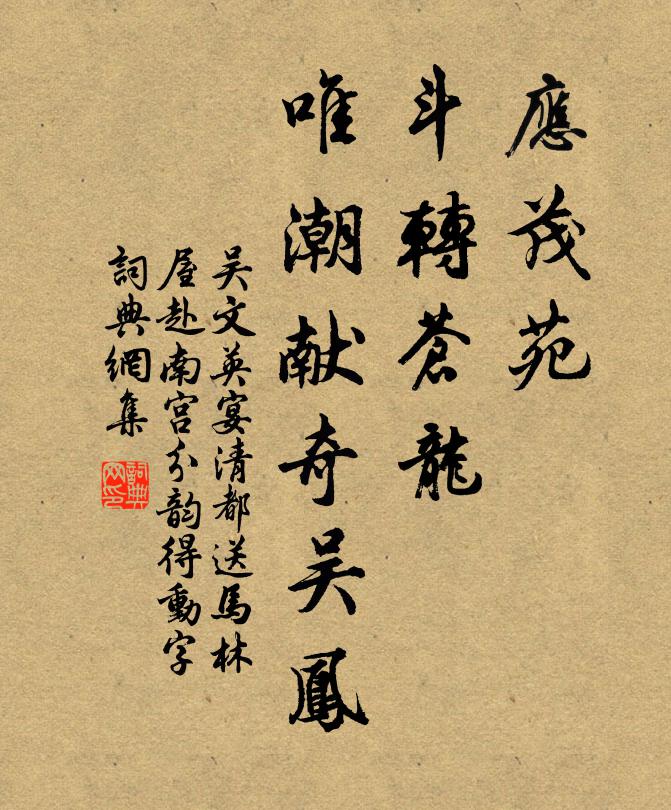 應茂苑
斗轉蒼龍
唯潮献奇吴鳳
吴文英宴清都送馬林
屋赴南宫分韵得動字
詞典網集
詞典网印